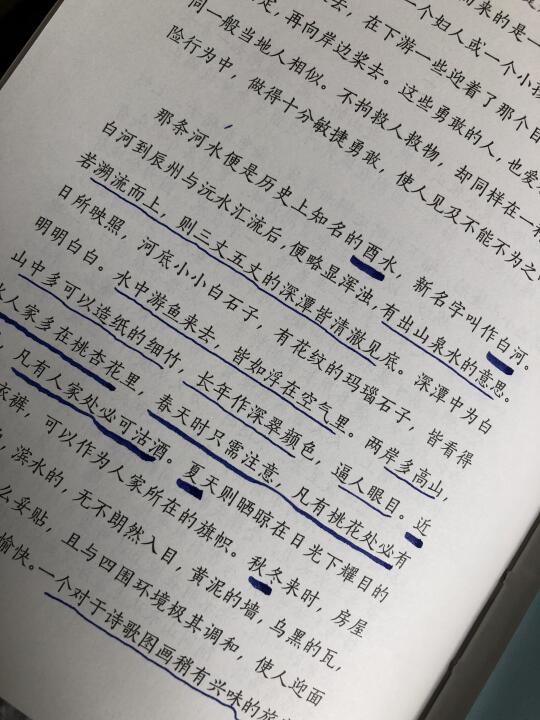 而来的是一
一个妇人或一个小孩
去，在下游一些迎着了那个目
定，再向岸边桨去。这些勇敢的人，也爱
同一般当地人相似。不拘救人救物，却同样在一
险行为中，做得十分敏捷勇敢，使人见及不能不为之
那条河水便是历史上知名的酉水，新名字叫作白河。
白河到辰州与沅水汇流后，便略显浑浊，有出山泉水的意思。
若溯流而上，则三丈五丈的深潭皆清澈见底。深潭中为白
日所映照，河底小小白石子，有花纹的玛瑙石子，皆看得
明明白白。水中游鱼来去，皆如浮在空气里。两岸多高山，
山中多可以造纸的细竹，长年作深翠颜色，逼人眼目。近
水人家多在桃杏花里，春天时只需注意，凡有桃花处必有
，凡有人家处必可沽酒。夏天则晒晾在日光下耀目的
衣裤，可以作为人家所在的旗帜。秋冬来时，房屋
，滨水的，无不朗然入目，黄泥的墙，乌黑的瓦，
么妥贴，且与四围环境极其调和，使人迎面
愉快。一个对于诗歌图画稍有兴味的旅